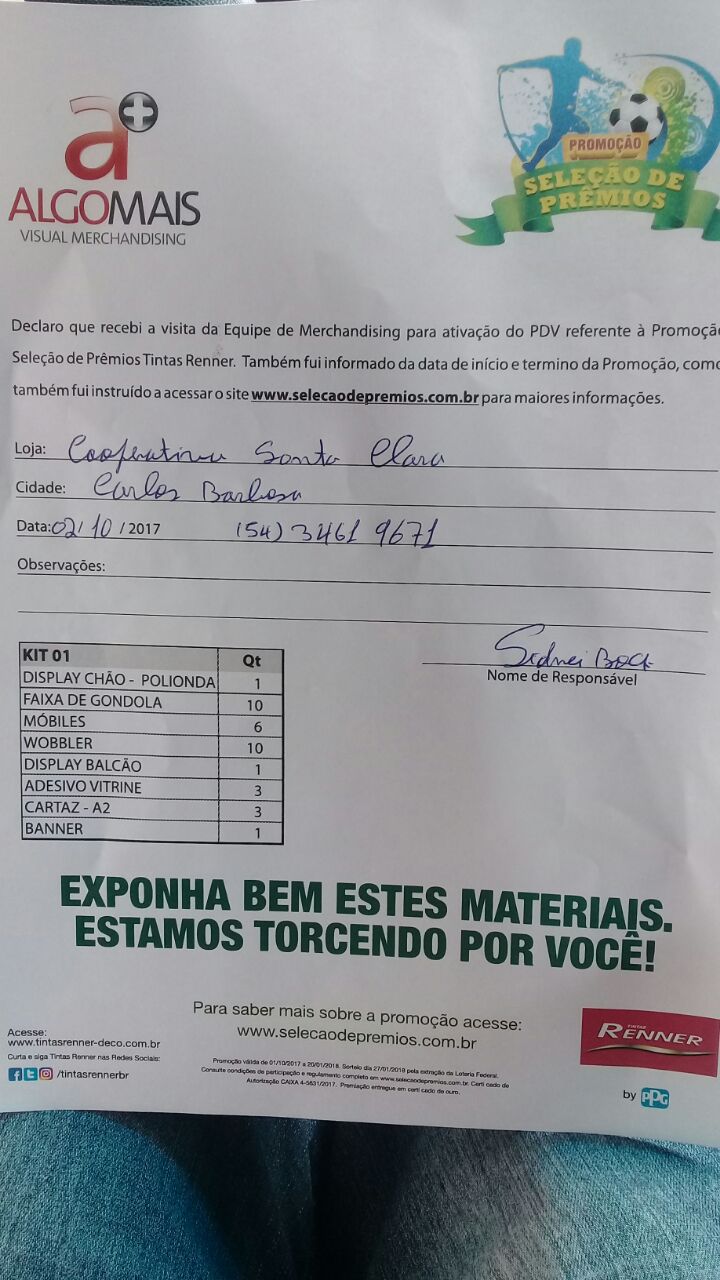 a+
ALGOMAIS
VISUAL MERCHANDISING
PROMOÇÃO
SELEÇÃO DE
PRÊMIOS
Declaro que recebi a visita da Equipe de Merchandising para ativação do PDV referente à Promoção
Seleção de Prêmios Tintas Renner. Também fui informado da data de início e termino da Promoção, como
também fui instruído a acessar o site www.selecaodepremios.com.br para maiores informações.
Loja: Cooperativa Santa Clara
Cidade: Carlos Barbosa
Data: 02/10/2017 (54) 3461 9671
Observações:
Sidnei Bock
Nome de Responsável
KIT 01 Qt
DISPLAY CHÃO - POLIONDA 1
FAIXA DE GONDOLA 10
MÓBILES 6
WOBBLER 10
DISPLAY BALCÃO 1
ADESIVO VITRINE 3
CARTAZ - A2 3
BANNER 1
EXPONHA BEM ESTES MATERIAIS.
ESTAMOS TORCENDO POR VOCÊ!
Para saber mais sobre a promoção acesse:
www.selecaodepremios.com.br
Acesse:
www.tintasrenner-deco.com.br
Curta e siga Tintas Renner nas Redes Sociais:
/tintasrennerbr
Promoção válida de 01/10/2017 a 20/01/2018. Sorteio dia 27/01/2018 pela extração da Loteria Federal.
Consulte condições de participação e regulamento completo em www.selecaodepremios.com.br. Certificado de
Autorização CAIXA 4-5631/2017. Premiação entregue em certificado de ouro.
TINTAS
RENNER
by PPG